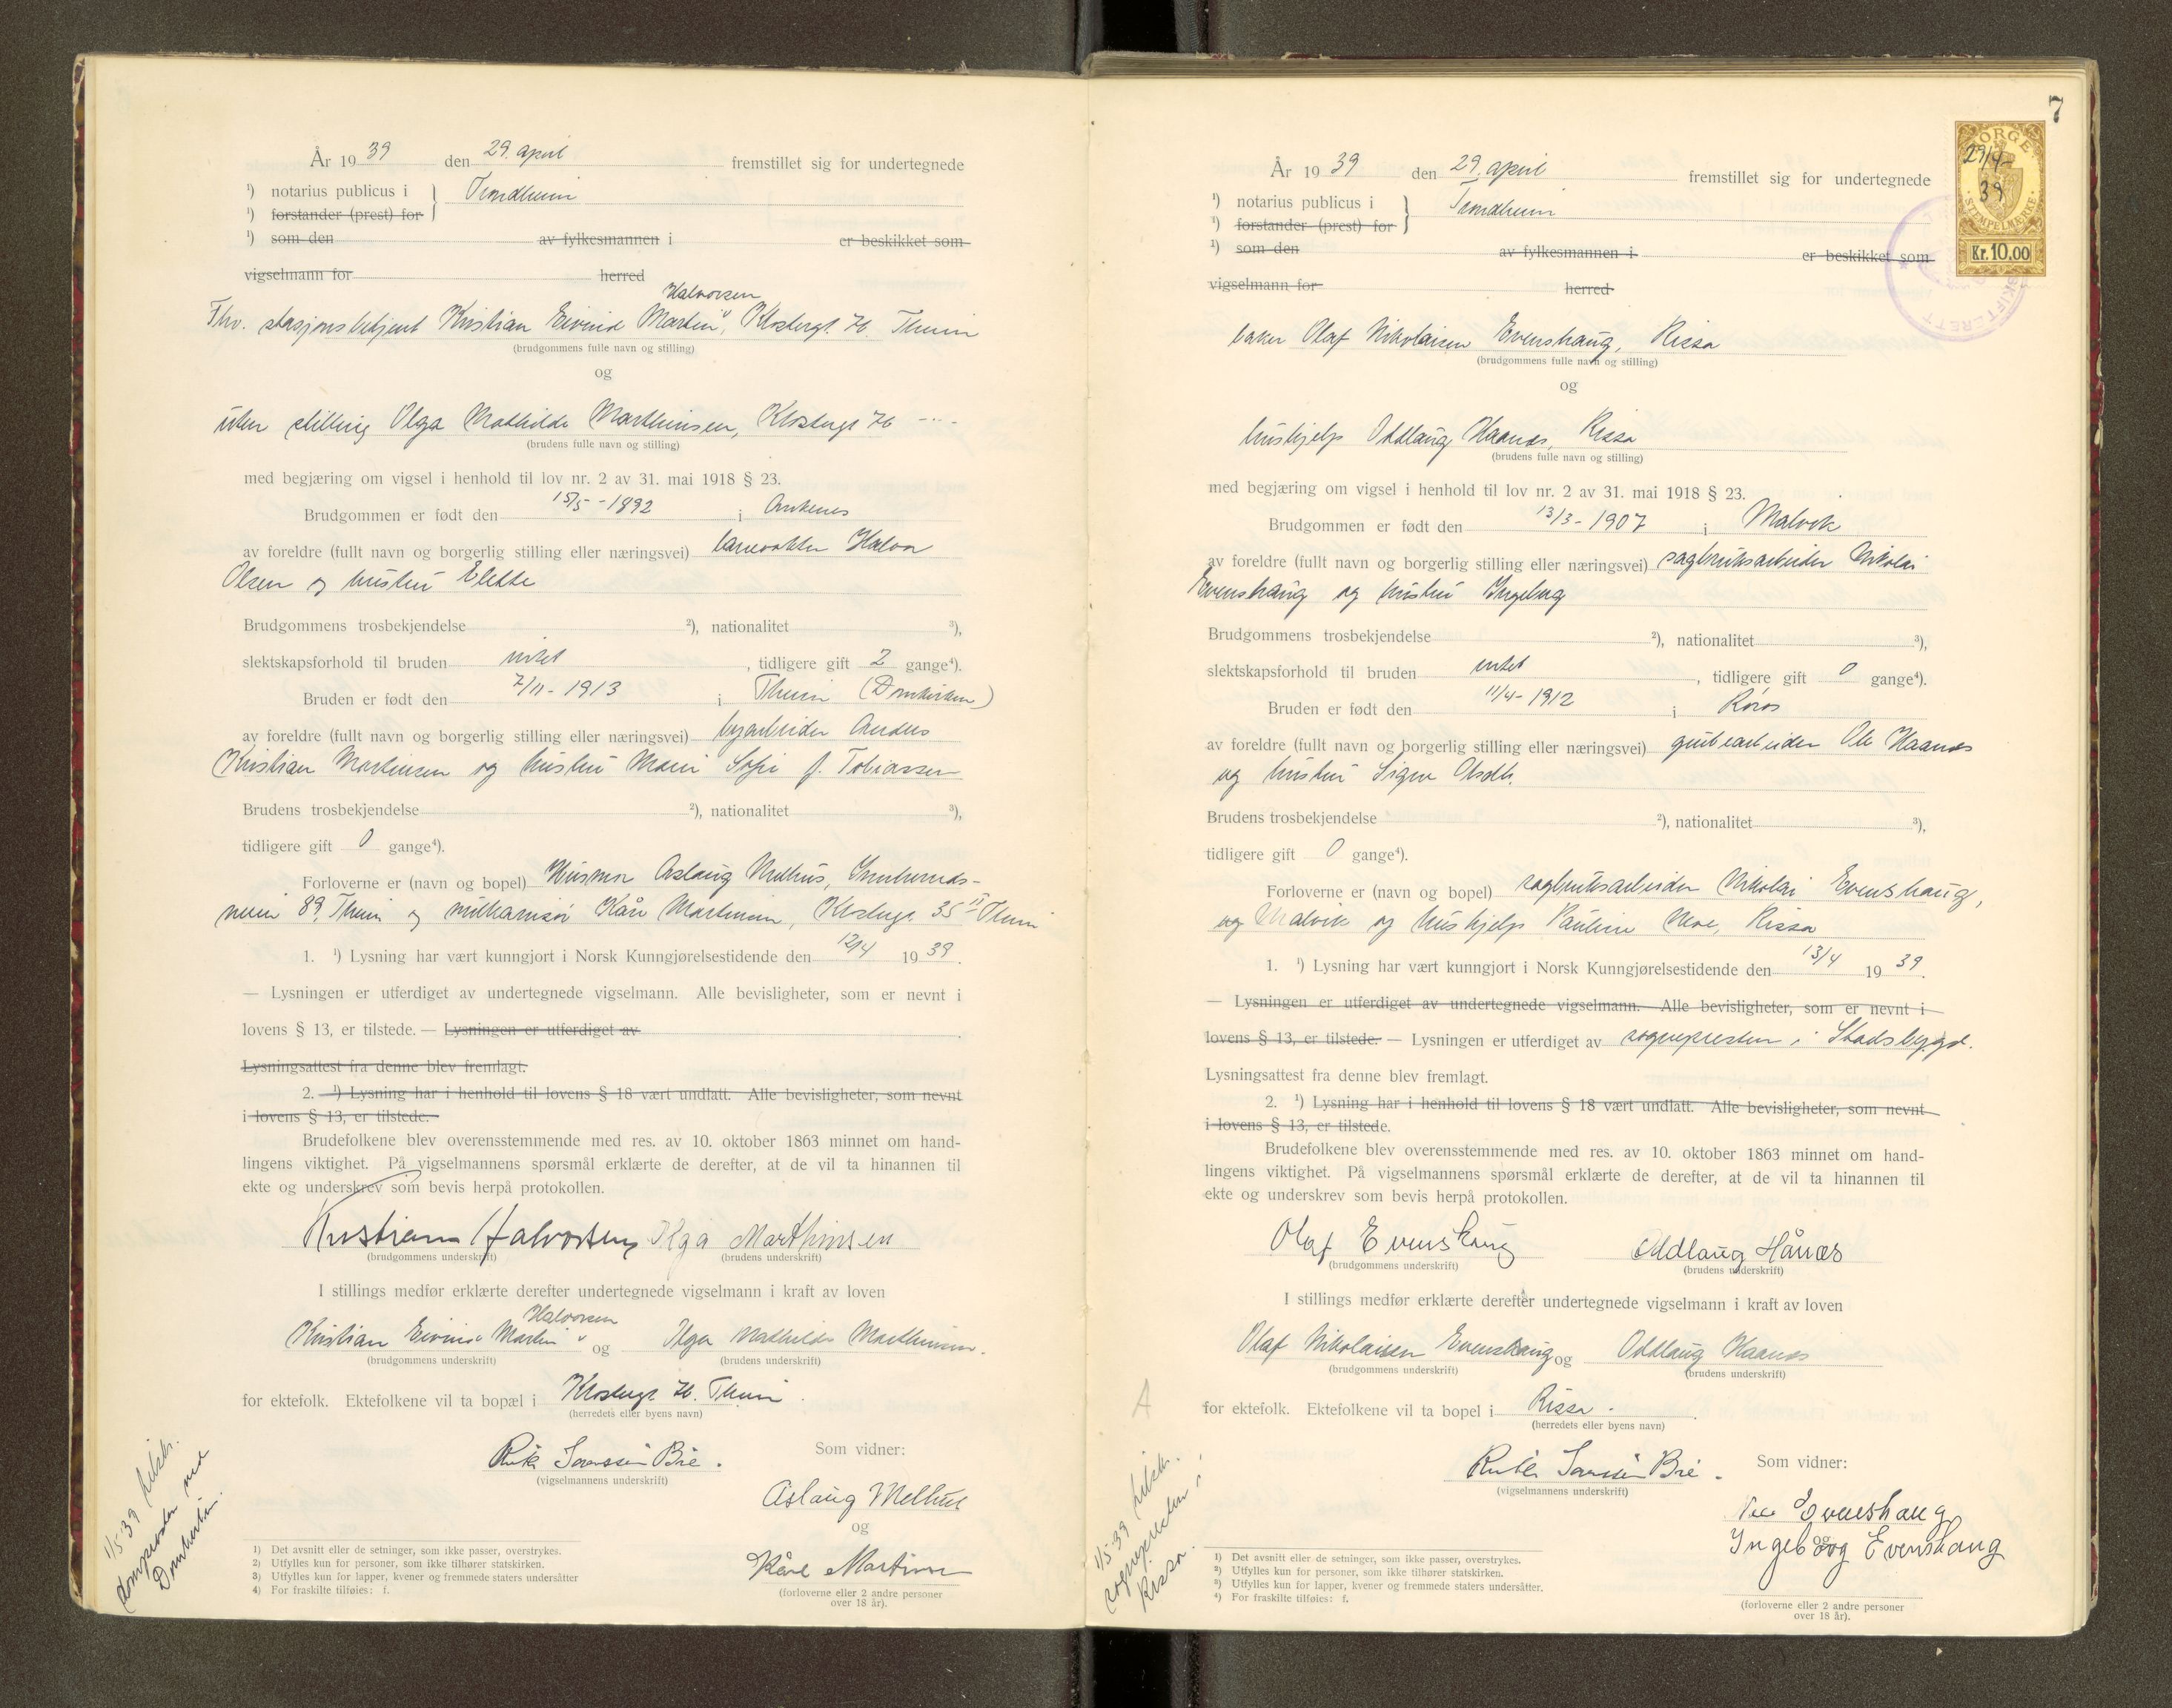 År 1939 den 29. april fremstillet sig for undertegnede
¹) notarius publicus i } Trondheim
¹) forstander (prest) for
¹) som den av fylkesmannen i er beskikket som
vigselmann for herred
Halvorsen
Thv. stasjonsbetjent Kristian Eivind Martin, Klostergt. 76. Theim
(brudgommens fulle navn og stilling)
og
uten stilling Olga Mathilde Marthinsen, Klostergt 76 - - -
(brudens fulle navn og stilling)
med begjæring om vigsel i henhold til lov nr. 2 av 31. mai 1918 § 23.
Brudgommen er født den 15/5 - 1892 i Ankenes
av foreldre (fullt navn og borgerlig stilling eller næringsvei) Halvor
Olsen og hustru Elette
Brudgommens trosbekjendelse ²), nationalitet ³),
slektskapsforhold til bruden intet, tidligere gift 2 gange⁴).
Bruden er født den 7/11 - 1913 i Theim (Domkirken)
av foreldre (fullt navn og borgerlig stilling eller næringsvei) byarbeider Anders
Kristian Martinsen og hustru Marie Sofie f. Tobiassen
Brudens trosbekjendelse ²), nationalitet ³),
tidligere gift 0 gange⁴).
Forloverne er (navn og bopel) Husmor Aslaug Melhus, Innherreds-
veien 89, Theim og Kåre Martinsen, Klostergt. 35 II Theim
1. ¹) Lysning har vært kunngjort i Norsk Kunngjørelsestidende den 12/4 1939.
— Lysningen er utferdiget av undertegnede vigselmann. Alle bevisligheter, som er nevnt i
lovens § 13, er tilstede. — Lysningen er utferdiget av
Lysningsattest fra denne blev fremlagt.
2. ¹) Lysning har i henhold til lovens § 18 vært undlatt. Alle bevisligheter, som nevnt
i lovens § 13, er tilstede.
Brudefolkene blev overensstemmende med res. av 10. oktober 1863 minnet om hand-
lingens viktighet. På vigselmannens spørsmål erklærte de derefter, at de vil ta hinannen til
ekte og underskrev som bevis herpå protokollen.
Kristian Halvorsen Olga Marthinsen
(brudgommens underskrift) (brudens underskrift)
I stillings medfør erklærte derefter undertegnede vigselmann i kraft av loven
Halvorsen
Kristian Eivind Martin og Olga Mathilde Marthinsen.
(brudgommens underskrift) (brudens underskrift)
for ektefolk. Ektefolkene vil ta bopæl i Klostergt 76. Theim.
(herredets eller byens navn)
Som vidner:
(vigselmannens underskrift)
Aslaug Melhus
og
Kåre Martinsen
(forloverne eller 2 andre personer
over 18 år).
1/5-39 tilskr.
domprosten ved
Domkirken.
1) Det avsnitt eller de setninger, som ikke passer, overstrykes.
2) Utfylles kun for personer, som ikke tilhører statskirken.
3) Utfylles kun for lapper, kvener og fremmede staters undersåtter
4) For fraskilte tilføies: f.
7
NORGE
29/4-
39
STEMPELMERKE
Kr. 10.00
SKIFTERETT
År 1939 den 29. april fremstillet sig for undertegnede
¹) notarius publicus i } Trondheim
¹) forstander (prest) for
¹) som den av fylkesmannen i er beskikket som
vigselmann for herred
baker Olaf Nikolaisen Evenshaug, Rissa
(brudgommens fulle navn og stilling)
og
hushjelp Oddlaug Haanes, Rissa
(brudens fulle navn og stilling)
med begjæring om vigsel i henhold til lov nr. 2 av 31. mai 1918 § 23.
Brudgommen er født den 13/3 - 1907 i Malvik
av foreldre (fullt navn og borgerlig stilling eller næringsvei) sagbruksarbeider Nikolai
Evenshaug og hustru Ingeborg
Brudgommens trosbekjendelse ²), nationalitet ³),
slektskapsforhold til bruden intet, tidligere gift 0 gange⁴).
Bruden er født den 11/4 - 1912 i Røros
av foreldre (fullt navn og borgerlig stilling eller næringsvei) grubearbeider Ole Haanes
og hustru Signe
Brudens trosbekjendelse ²), nationalitet ³),
tidligere gift 0 gange⁴).
Forloverne er (navn og bopel) sagbruksarbeider Nikolai Evenshaug,
og Malvik og hushjelp Pauline Moe, Rissa
1. ¹) Lysning har vært kunngjort i Norsk Kunngjørelsestidende den 13/4 1939.
— Lysningen er utferdiget av undertegnede vigselmann. Alle bevisligheter, som er nevnt i
lovens § 13, er tilstede. — Lysningen er utferdiget av sognepresten i Stadsbygd.
Lysningsattest fra denne blev fremlagt.
2. ¹) Lysning har i henhold til lovens § 18 vært undlatt. Alle bevisligheter, som nevnt
i lovens § 13, er tilstede.
Brudefolkene blev overensstemmende med res. av 10. oktober 1863 minnet om hand-
lingens viktighet. På vigselmannens spørsmål erklærte de derefter, at de vil ta hinannen til
ekte og underskrev som bevis herpå protokollen.
Olaf Evenshaug Oddlaug Hånæs
(brudgommens underskrift) (brudens underskrift)
I stillings medfør erklærte derefter undertegnede vigselmann i kraft av loven
Olaf Nikolaisen Evenshaug og Oddlaug Haanes
(brudgommens underskrift) (brudens underskrift)
A
for ektefolk. Ektefolkene vil ta bopel i Rissa.
(herredets eller byens navn)
Som vidner:
(vigselmannens underskrift)
Evenshaug
og
Ingeborg Evenshaug
(forloverne eller 2 andre personer
over 18 år).
1/5-39 tilskr.
sognepresten i
Rissa.
1) Det avsnitt eller de setninger, som ikke passer, overstrykes.
2) Utfylles kun for personer, som ikke tilhører statskirken.
3) Utfylles kun for lapper, kvener og fremmede staters undersåtter.
4) For fraskilte tilføies: f.